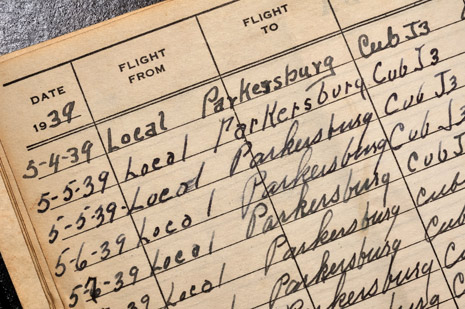 DATE FLIGHT FROM FLIGHT TO
1939
5-4-39 Local Parkersburg Cub J3
5-5-39 Local Parkersburg Cub J3
5-5-39 Local Parkersburg Cub J3
5-6-39 Local Parkersburg Cub J3
5-7-39 Local Parkersburg Cub J
39 Local Parkersburg Cub
Parkersburg Cu